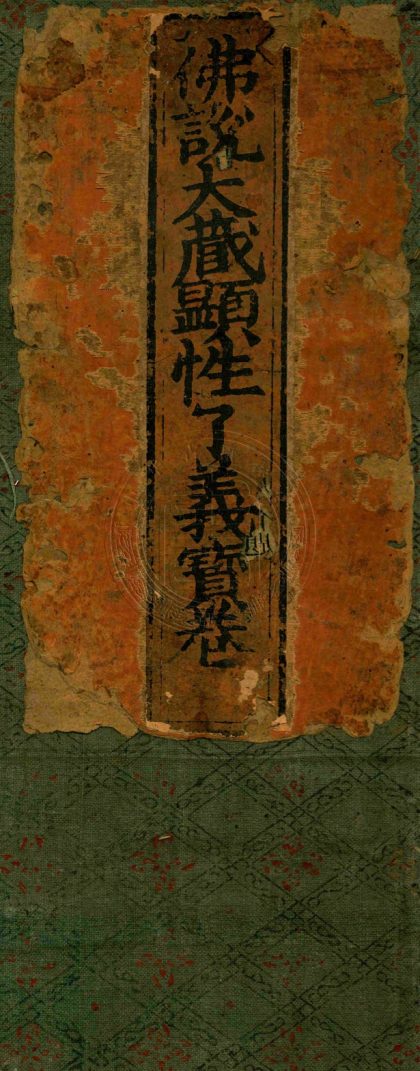 佛說大藏顯性了義寶卷